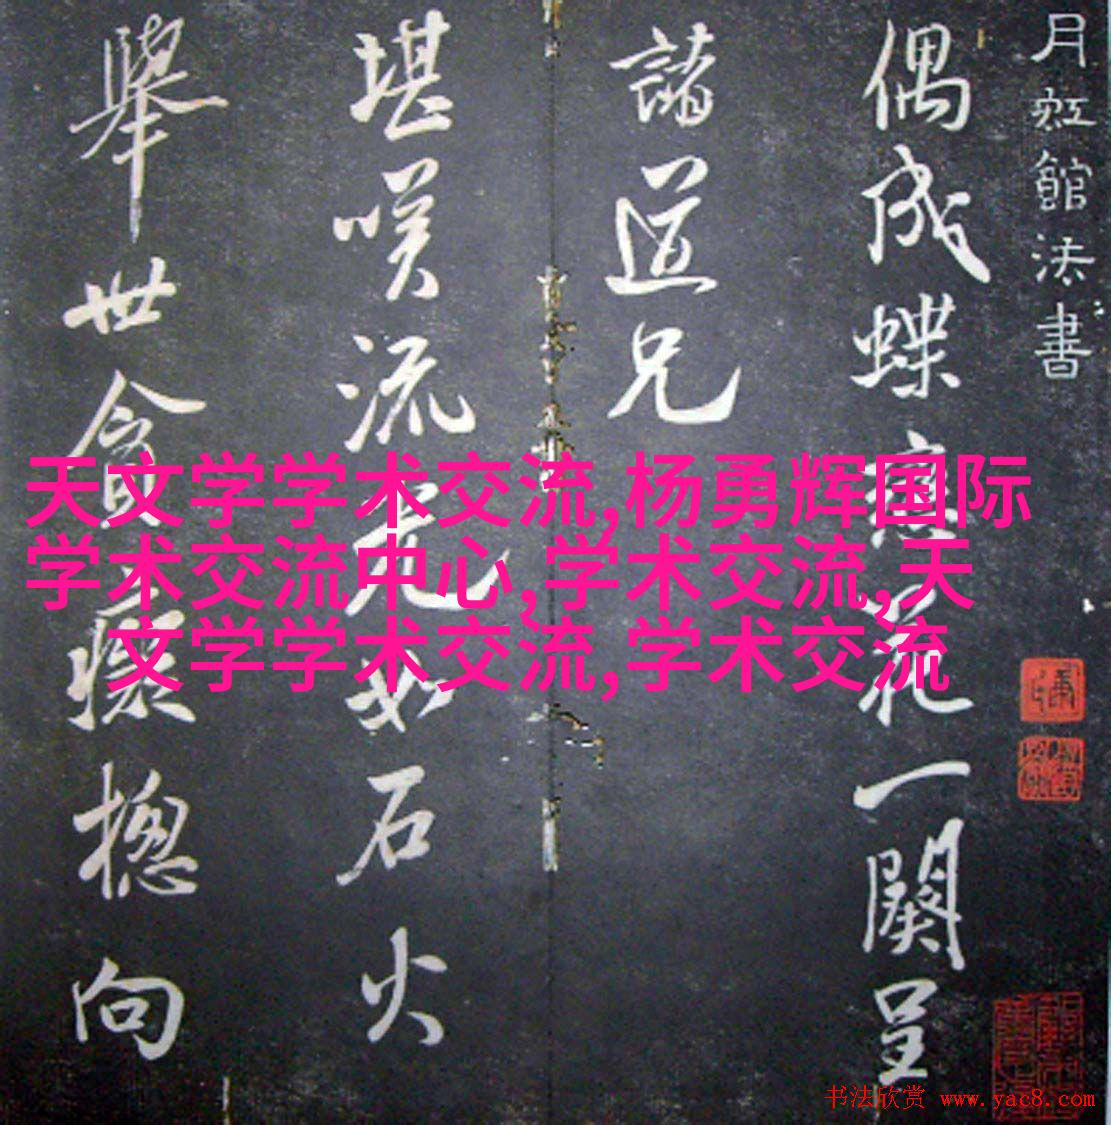 月虹館法書
偶成蝶戀花一闋呈
諸道兄
堪嘆流光如石火
舉世貪癡揔向
天文学学术交流,杨勇辉国际
学术交流中心,学术交流,天
文学学术交流,学术交流
书法欣赏 www.yac8.com